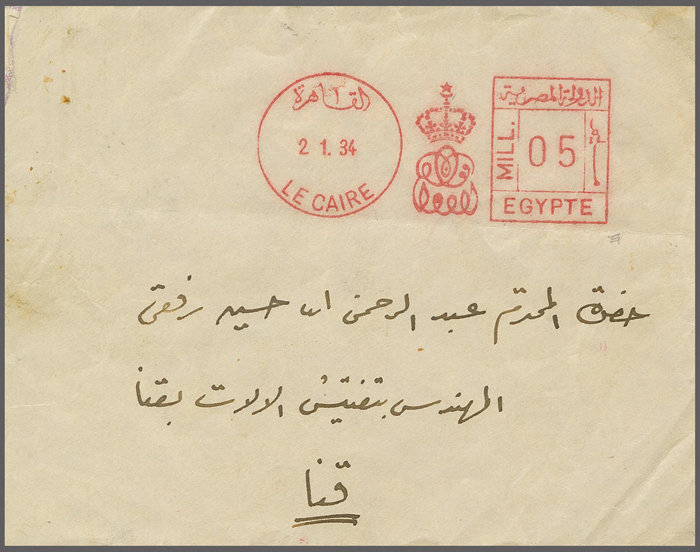 القاهرة
2.1.34
LE CAIRE
الدولة المصرية
MILL.
05
EGYPTE
حضرة المحترم عبد الرحمن حسين رفعتى
المهندس بتفتيش الالات بقنا
قنا